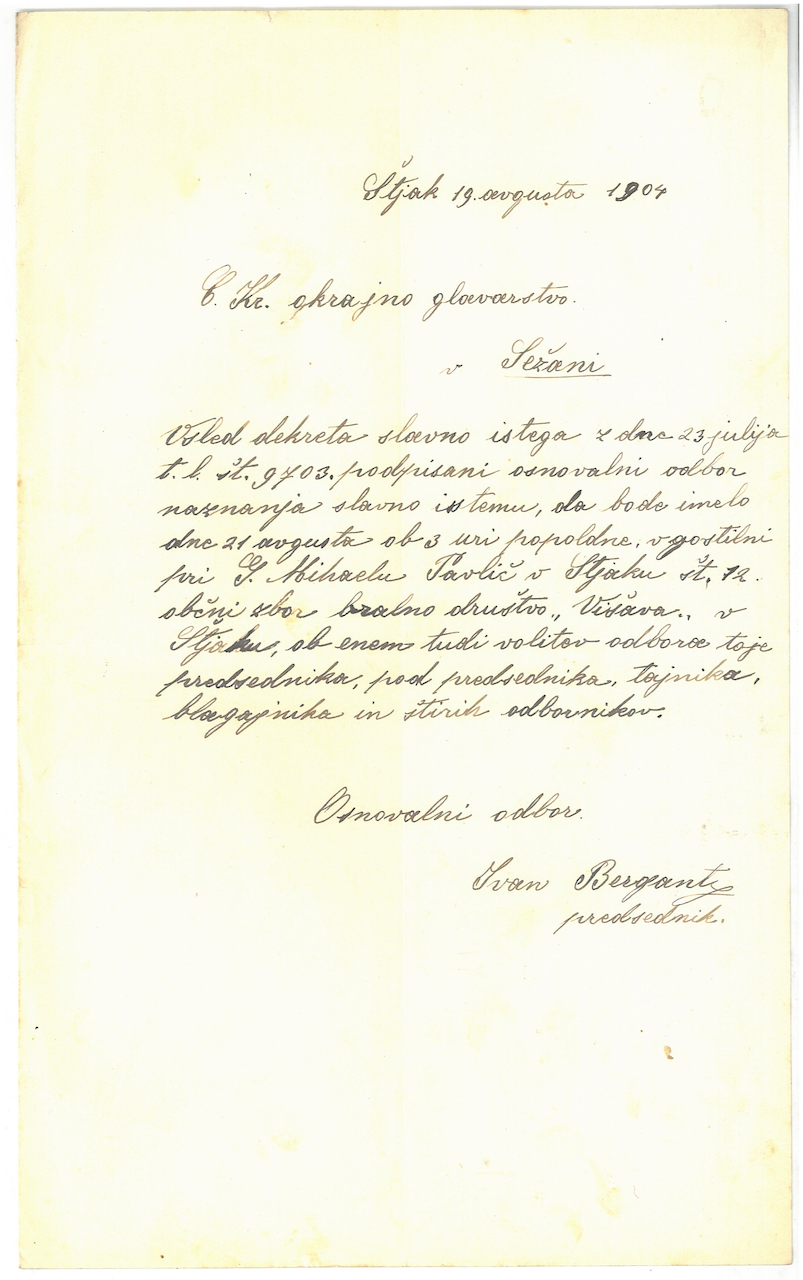 Štjak 19. avgusta 1904
C. Kr. okrajno glavarstvo.
v Sežani
Vsled dekreta slavno istega z dne 23 julija
t. l. št. 9703. podpisani osnovalni odbor
naznanja slavno istemu, da bode imelo
dne 21 avgusta ob 3 uri popoldne, v gostilni
pri G. Mihaelu Pavlič v Štjaku št. 12.
občni zbor bralno društvo „Višava„ v
Štjaku, ob enem tudi volitev odbora toje
predsednika, pod predsednika, tajnika,
blagajnika in štirih odbornikov.
Osnovalni odbor.
Ivan Bergant
predsednik.